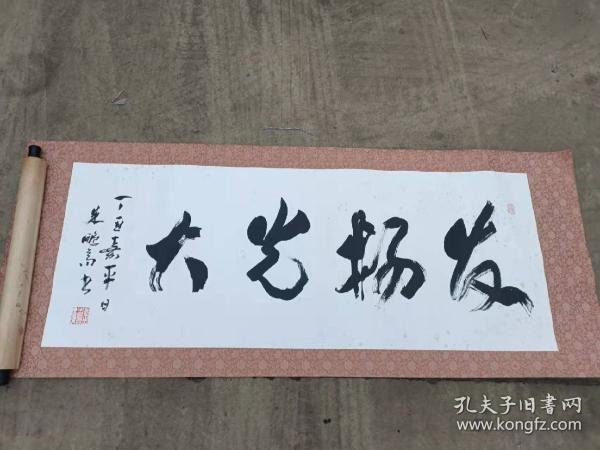 发扬光大
丁酉嘉平日
朱鹏高书
孔夫子旧书网
www.kongfz.com